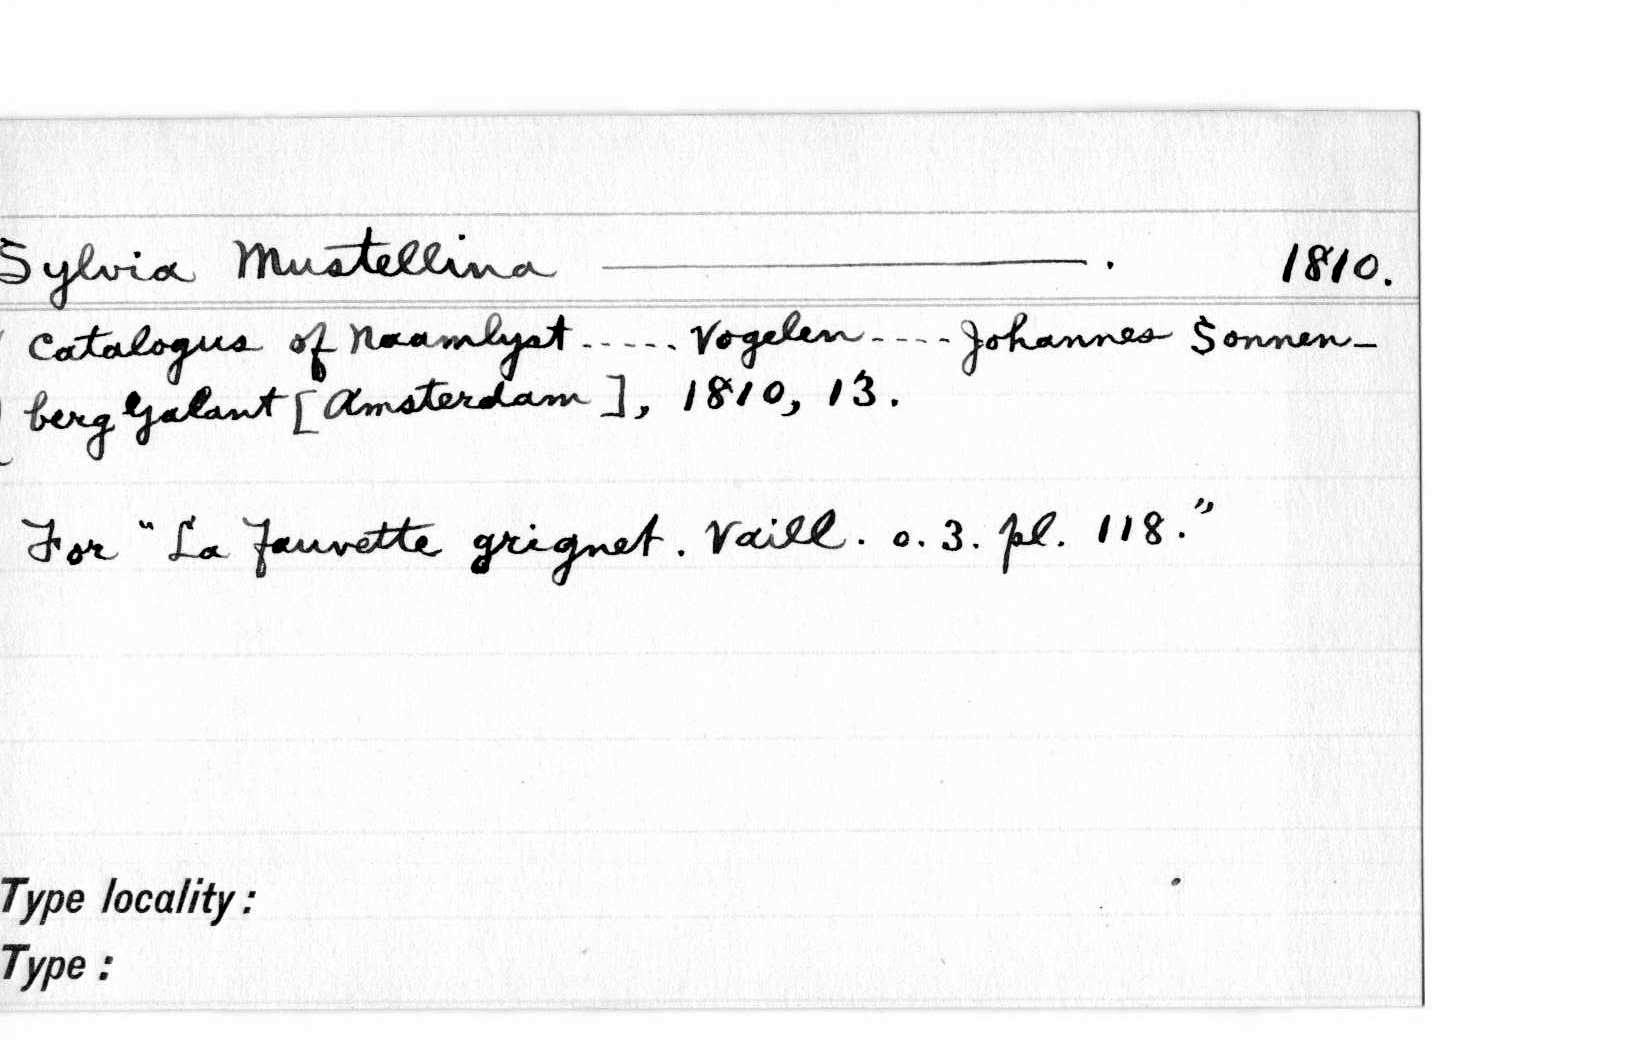 Sylvia Mustellina ———. 1810.
Catalogus of Naamlyst ----- Vogelen ---- Johannes Sonnen-
berg Galant [Amsterdam], 1810, 13.
For "La Fauvette grignet. Vaill. o. 3. pl. 118."
Type locality:
Type: